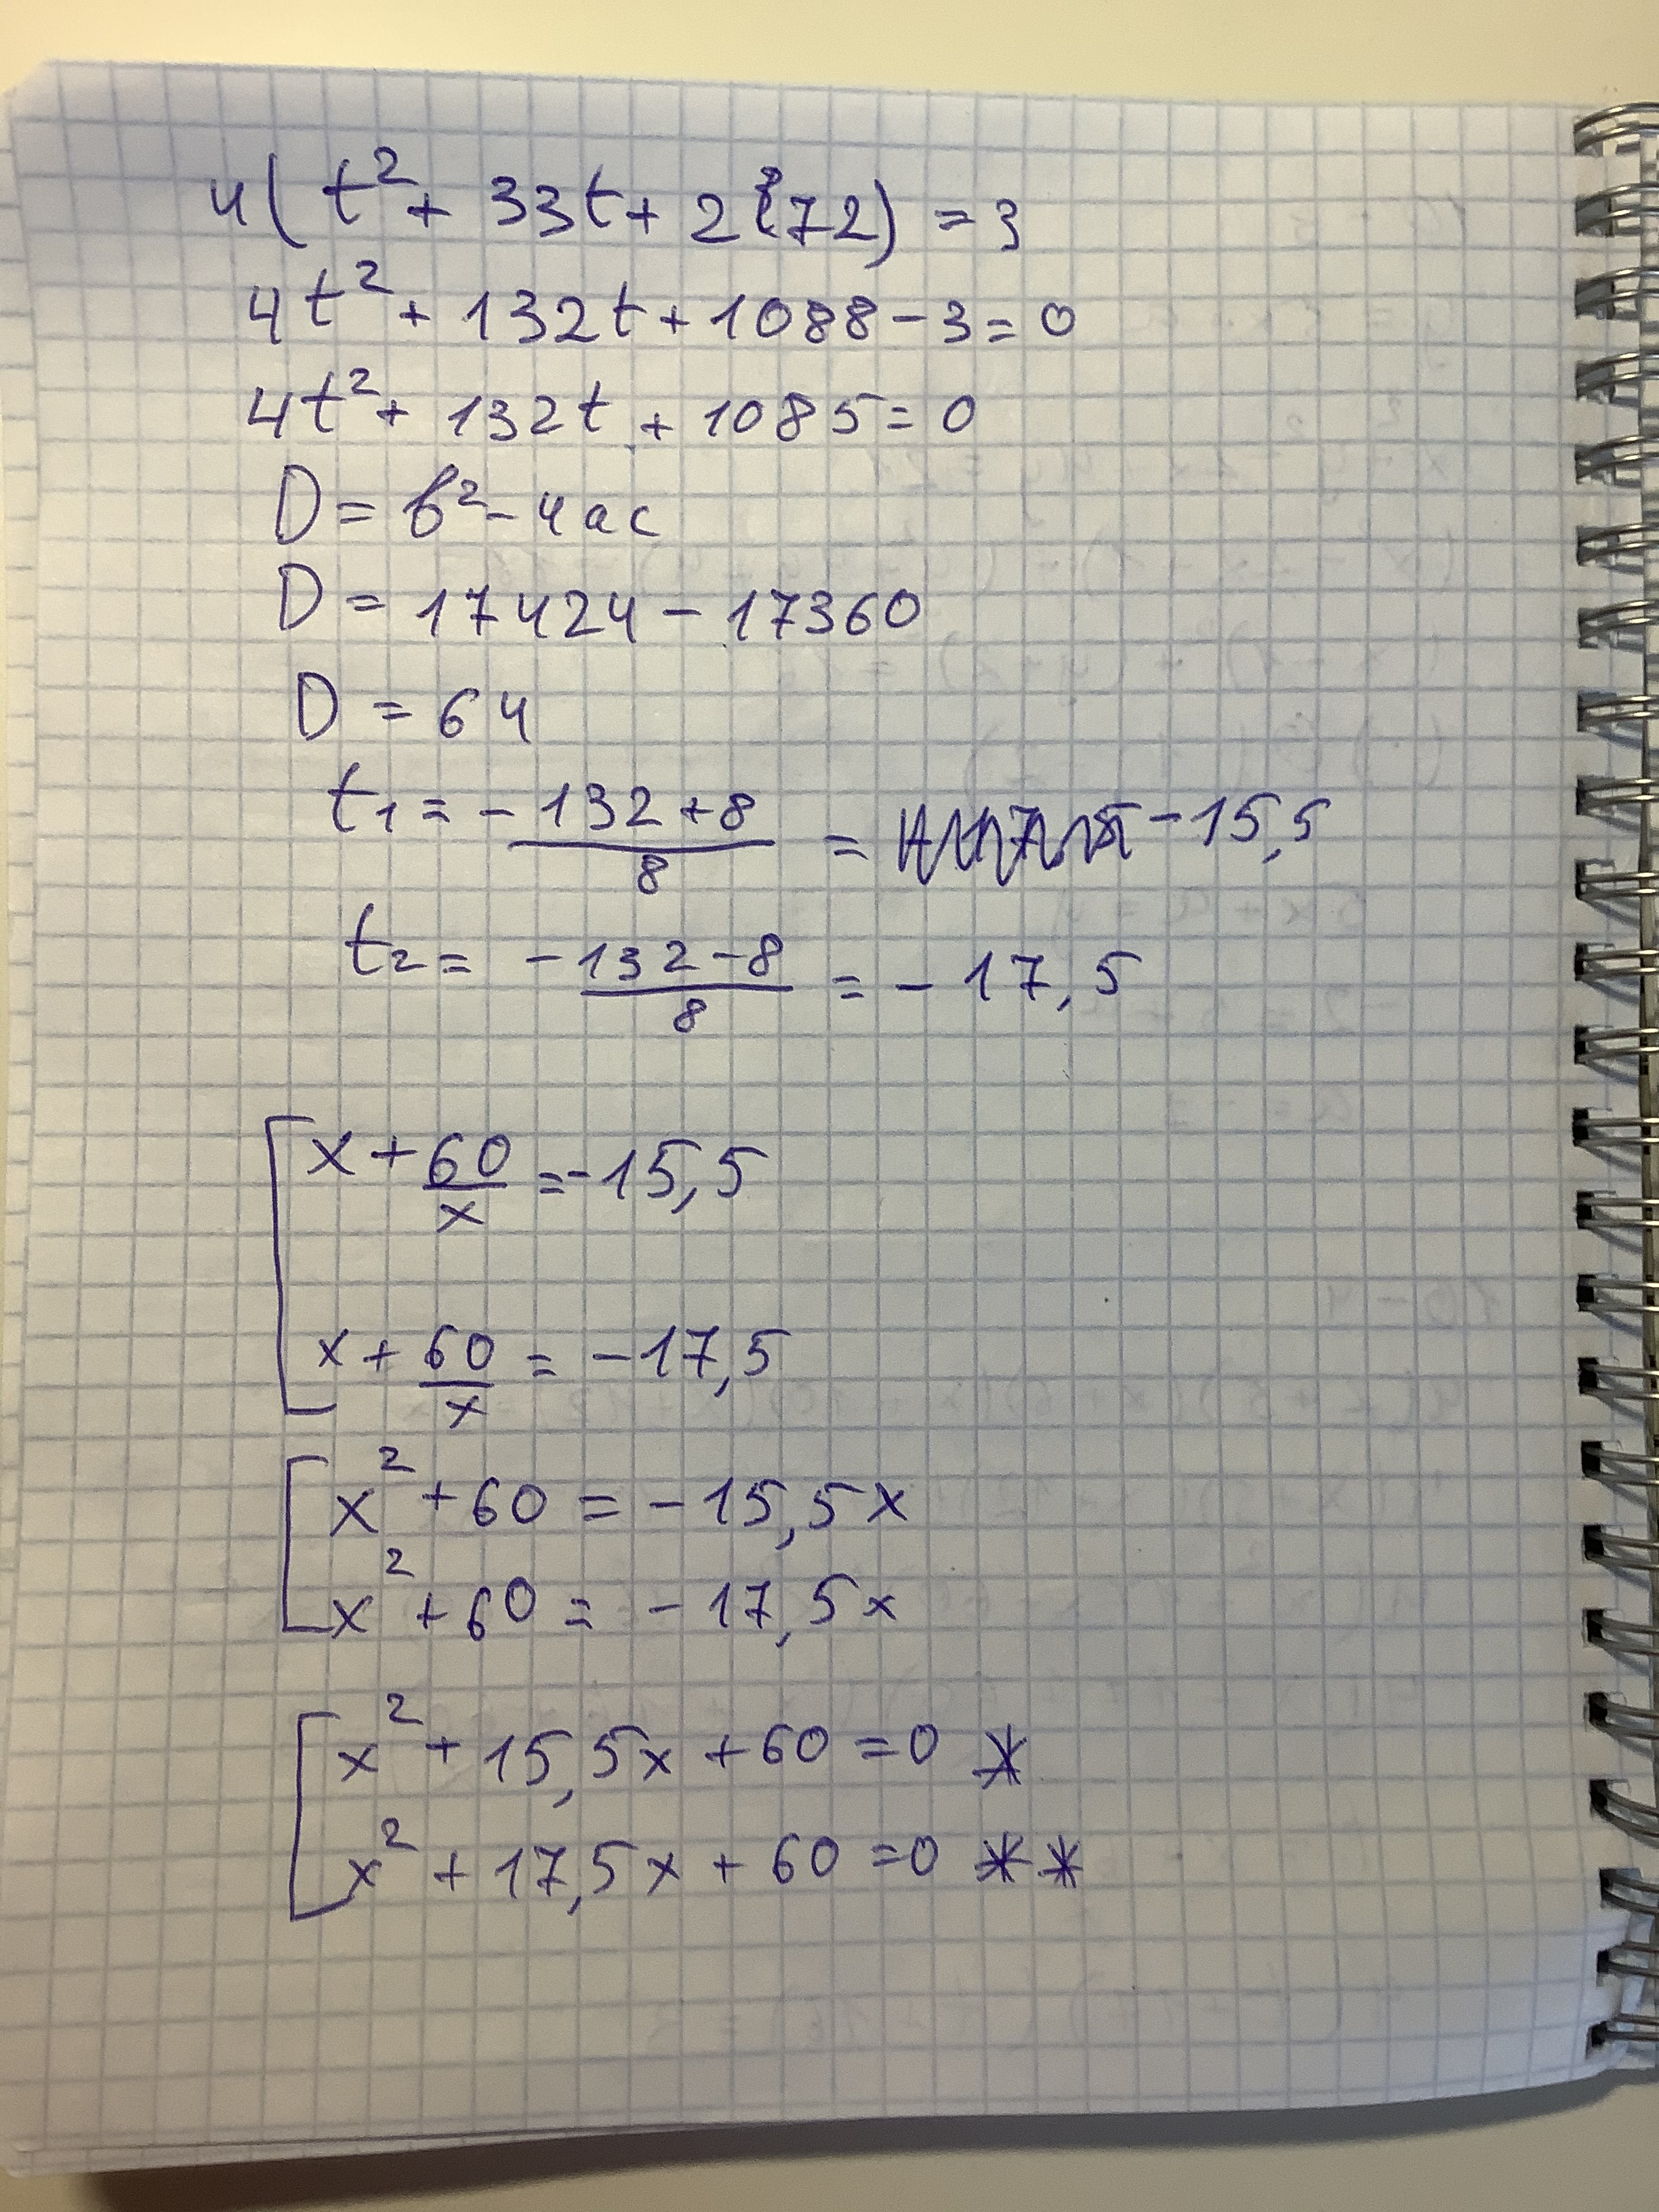 4(t² + 33t + 272) = 3
4t² + 132t + 1088 - 3 = 0
4t² + 132t + 1085 = 0
D = b² - 4ac
D = 17424 - 17360
D = 64
t₁ = -132 + 8 / 8 = -15,5
t₂ = -132 - 8 / 8 = -17,5
[ x + 60/x = -15,5
x + 60/x = -17,5
[ x² + 60 = -15,5x
x² + 60 = -17,5x
[ x² + 15,5x + 60 = 0 *
x² + 17,5x + 60 = 0 **